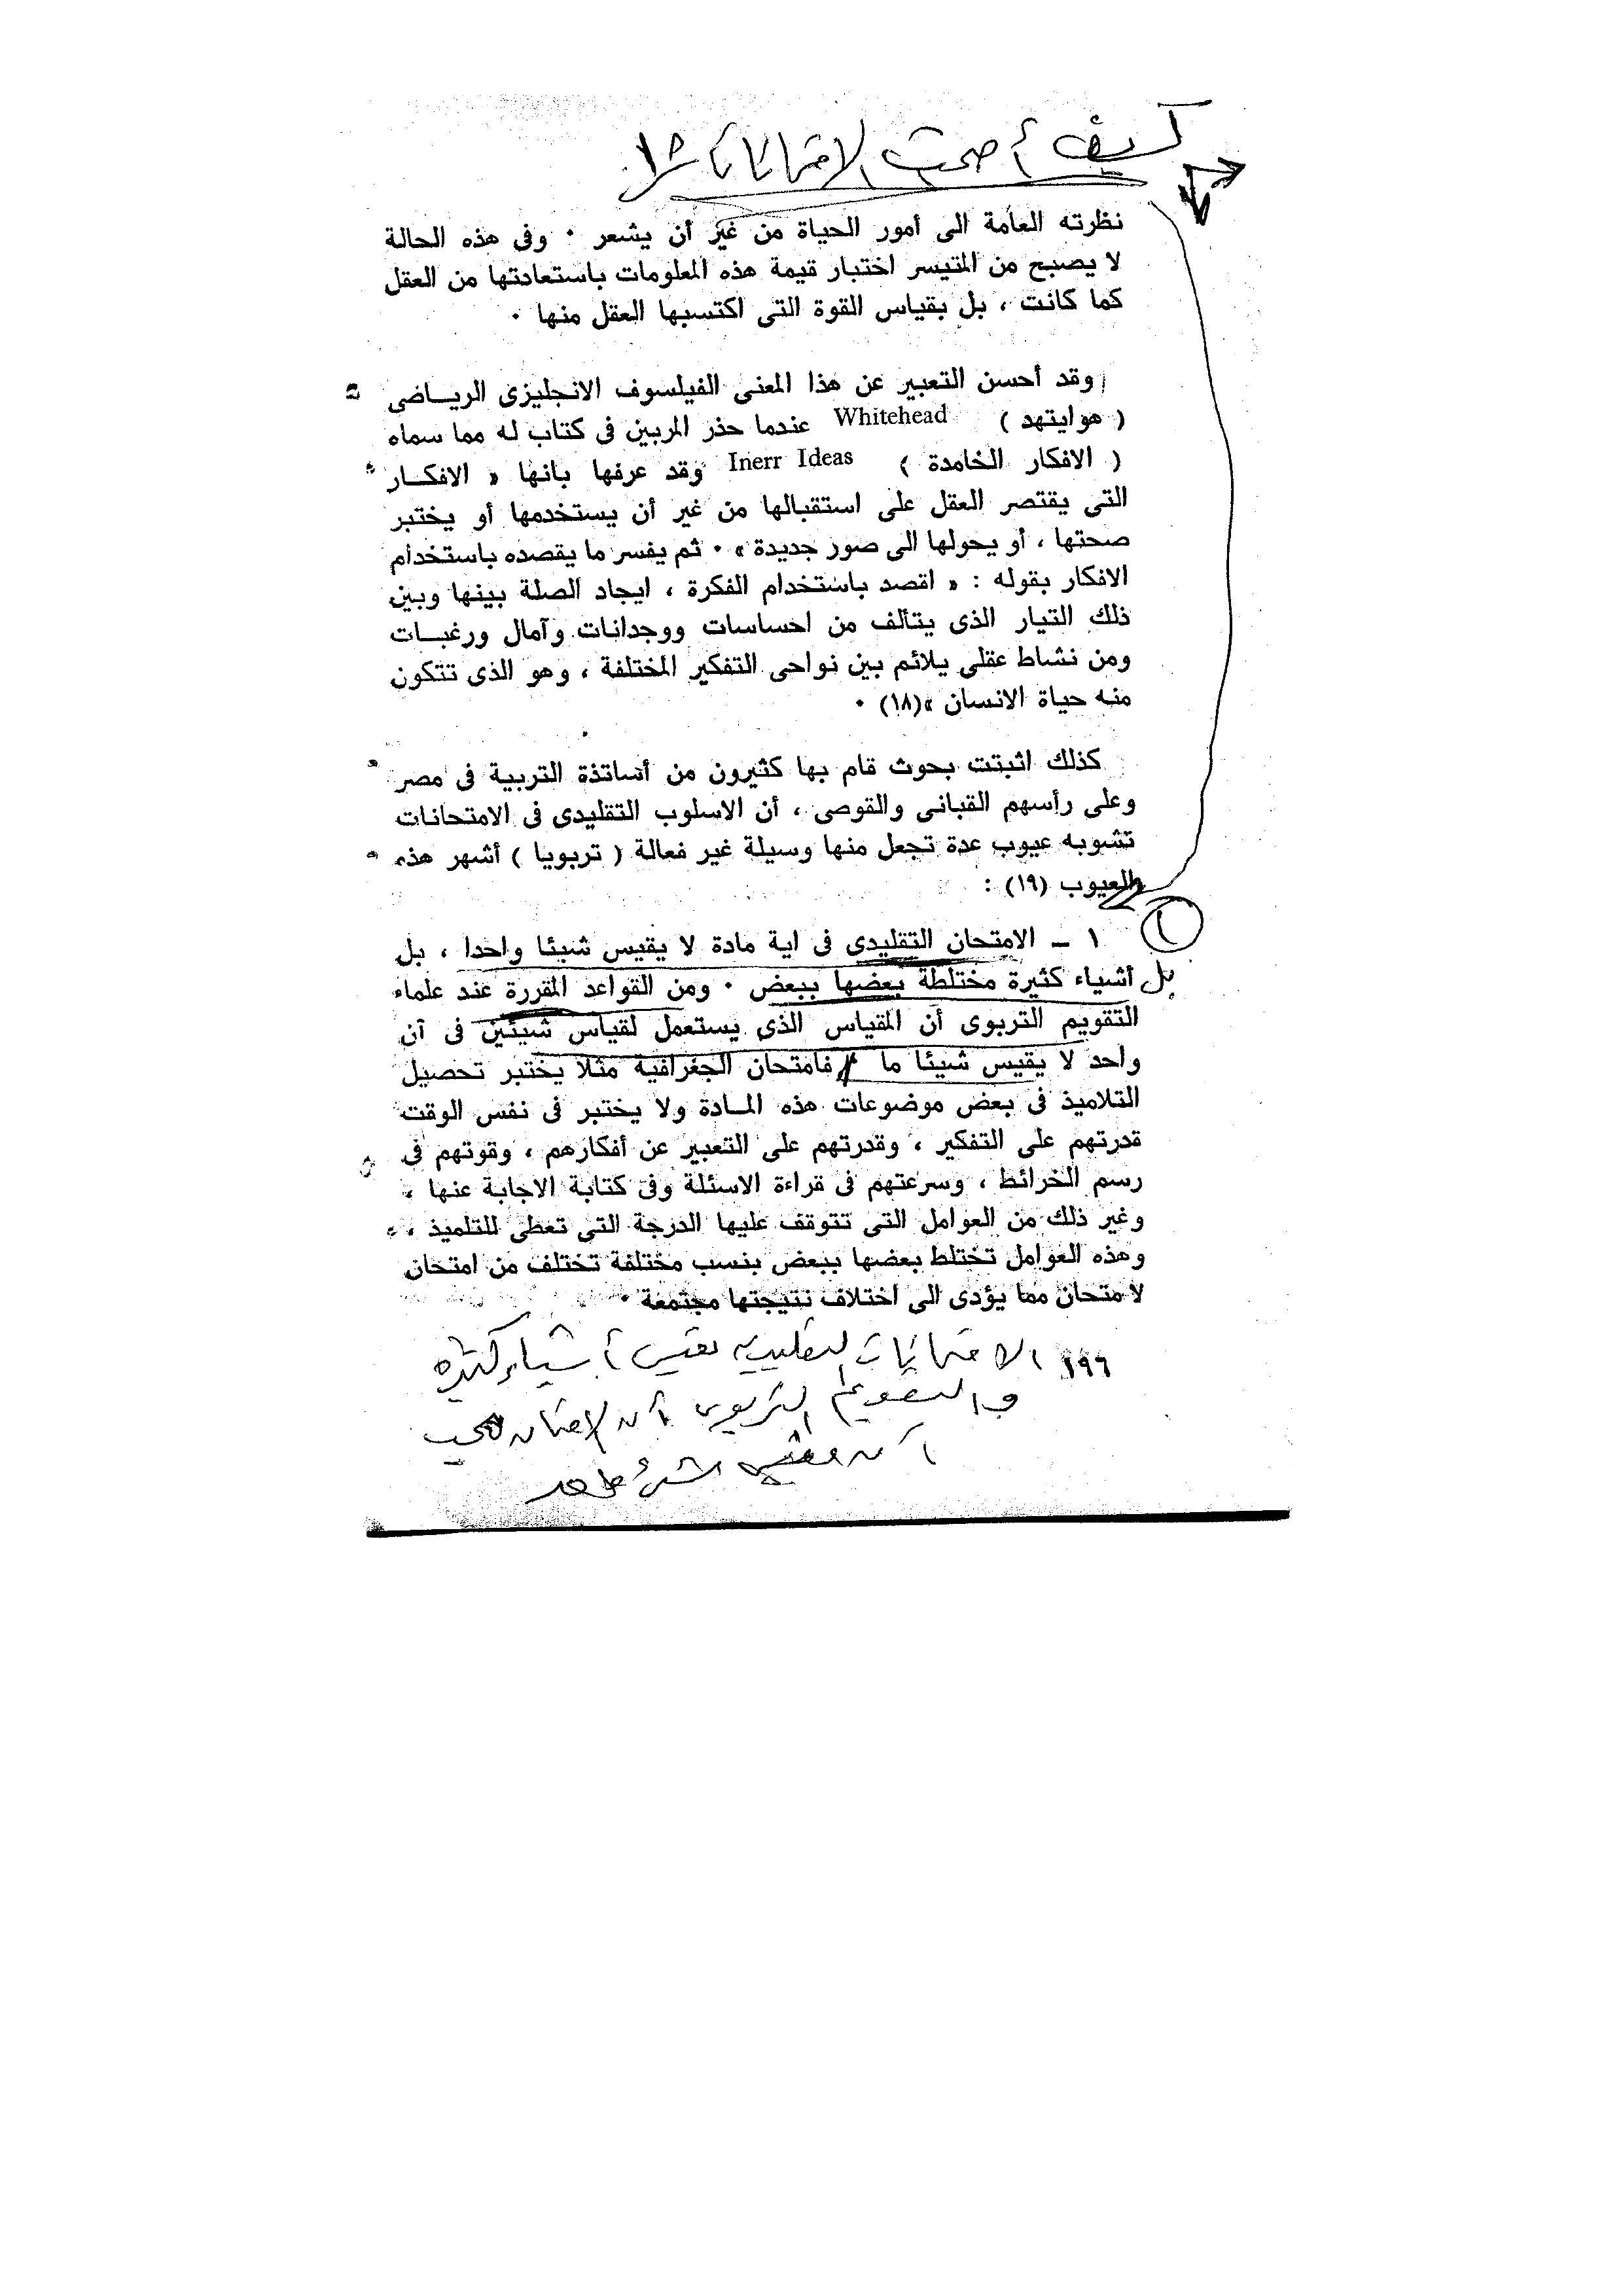 كيف أصبحت الامتحانات شرا
نظرته العامة الى أمور الحياة من غير أن يشعر ٠ وفى هذه الحالة
لا يصبح من المتيسر اختبار قيمة هذه المعلومات باستعادتها من العقل
كما كانت ، بل بقياس القوة التى اكتسبها العقل منها ٠
وقد أحسن التعبير عن هذا المعنى الفيلسوف الانجليزى الريــاضى
( هوايتهد ) Whitehead عندما حذر المربين فى كتاب له مما سماه
( الافكار الخامدة ) Inerr Ideas وقد عرفها بانها « الافكــار
التى يقتصر العقل على استقبالها من غير أن يستخدمها أو يختبر
صحتها ، أو يحولها الى صور جديدة » ٠ ثم يفسر ما يقصده باستخدام
الافكار بقوله : « اقصد باستخدام الفكرة ، ايجاد الصلة بينها وبين
ذلك التيار الذى يتألف من احساسات ووجدانات وآمال ورغبــات
ومن نشاط عقلى يلائم بين نواحى التفكير المختلفة ، وهو الذى تتكون
منه حياة الانسان »(١٨) ٠
كذلك اثبتت بحوث قام بها كثيرون من أساتذة التربية فى مصر
وعلى رأسهم القبانى والقوصى ، أن الاسلوب التقليدى فى الامتحانات
تشوبه عيوب عدة تجعل منها وسيلة غير فعالة ( تربويا ) أشهر هذه
العيوب (١٩) :
١
١ ــ الامتحان التقليدى فى اية مادة لا يقيس شيئا واحدا ، بل
بل أشياء كثيرة مختلطة بعضها ببعض ٠ ومن القواعد المقررة عند علماء
التقويم التربوى أن المقياس الذى يستعمل لقياس شيئين فى آن
واحد لا يقيس شيئا ما فامتحان الجغرافية مثلا يختبر تحصيل
التلاميذ فى بعض موضوعات هذه المــادة ولا يختبر فى نفس الوقت
قدرتهم على التفكير ، وقدرتهم على التعبير عن أفكارهم ، وقوتهم فى
رسم الخرائط ، وسرعتهم فى قراءة الاسئلة وفى كتابة الاجابة عنها ،
وغير ذلك من العوامل التى تتوقف عليها الدرجة التى تعطى للتلميذ ،
وهذه العوامل تختلط بعضها ببعض بنسب مختلفة تختلف من امتحان
لامتحان مما يؤدى الى اختلاف نتيجتها مجتمعة ٠
١٩٦ الامتحانات التقليديه تقيس أشياء كثيره
والتقويم التربوى أن الامتحان يجب
أن يقيس شئ واحد